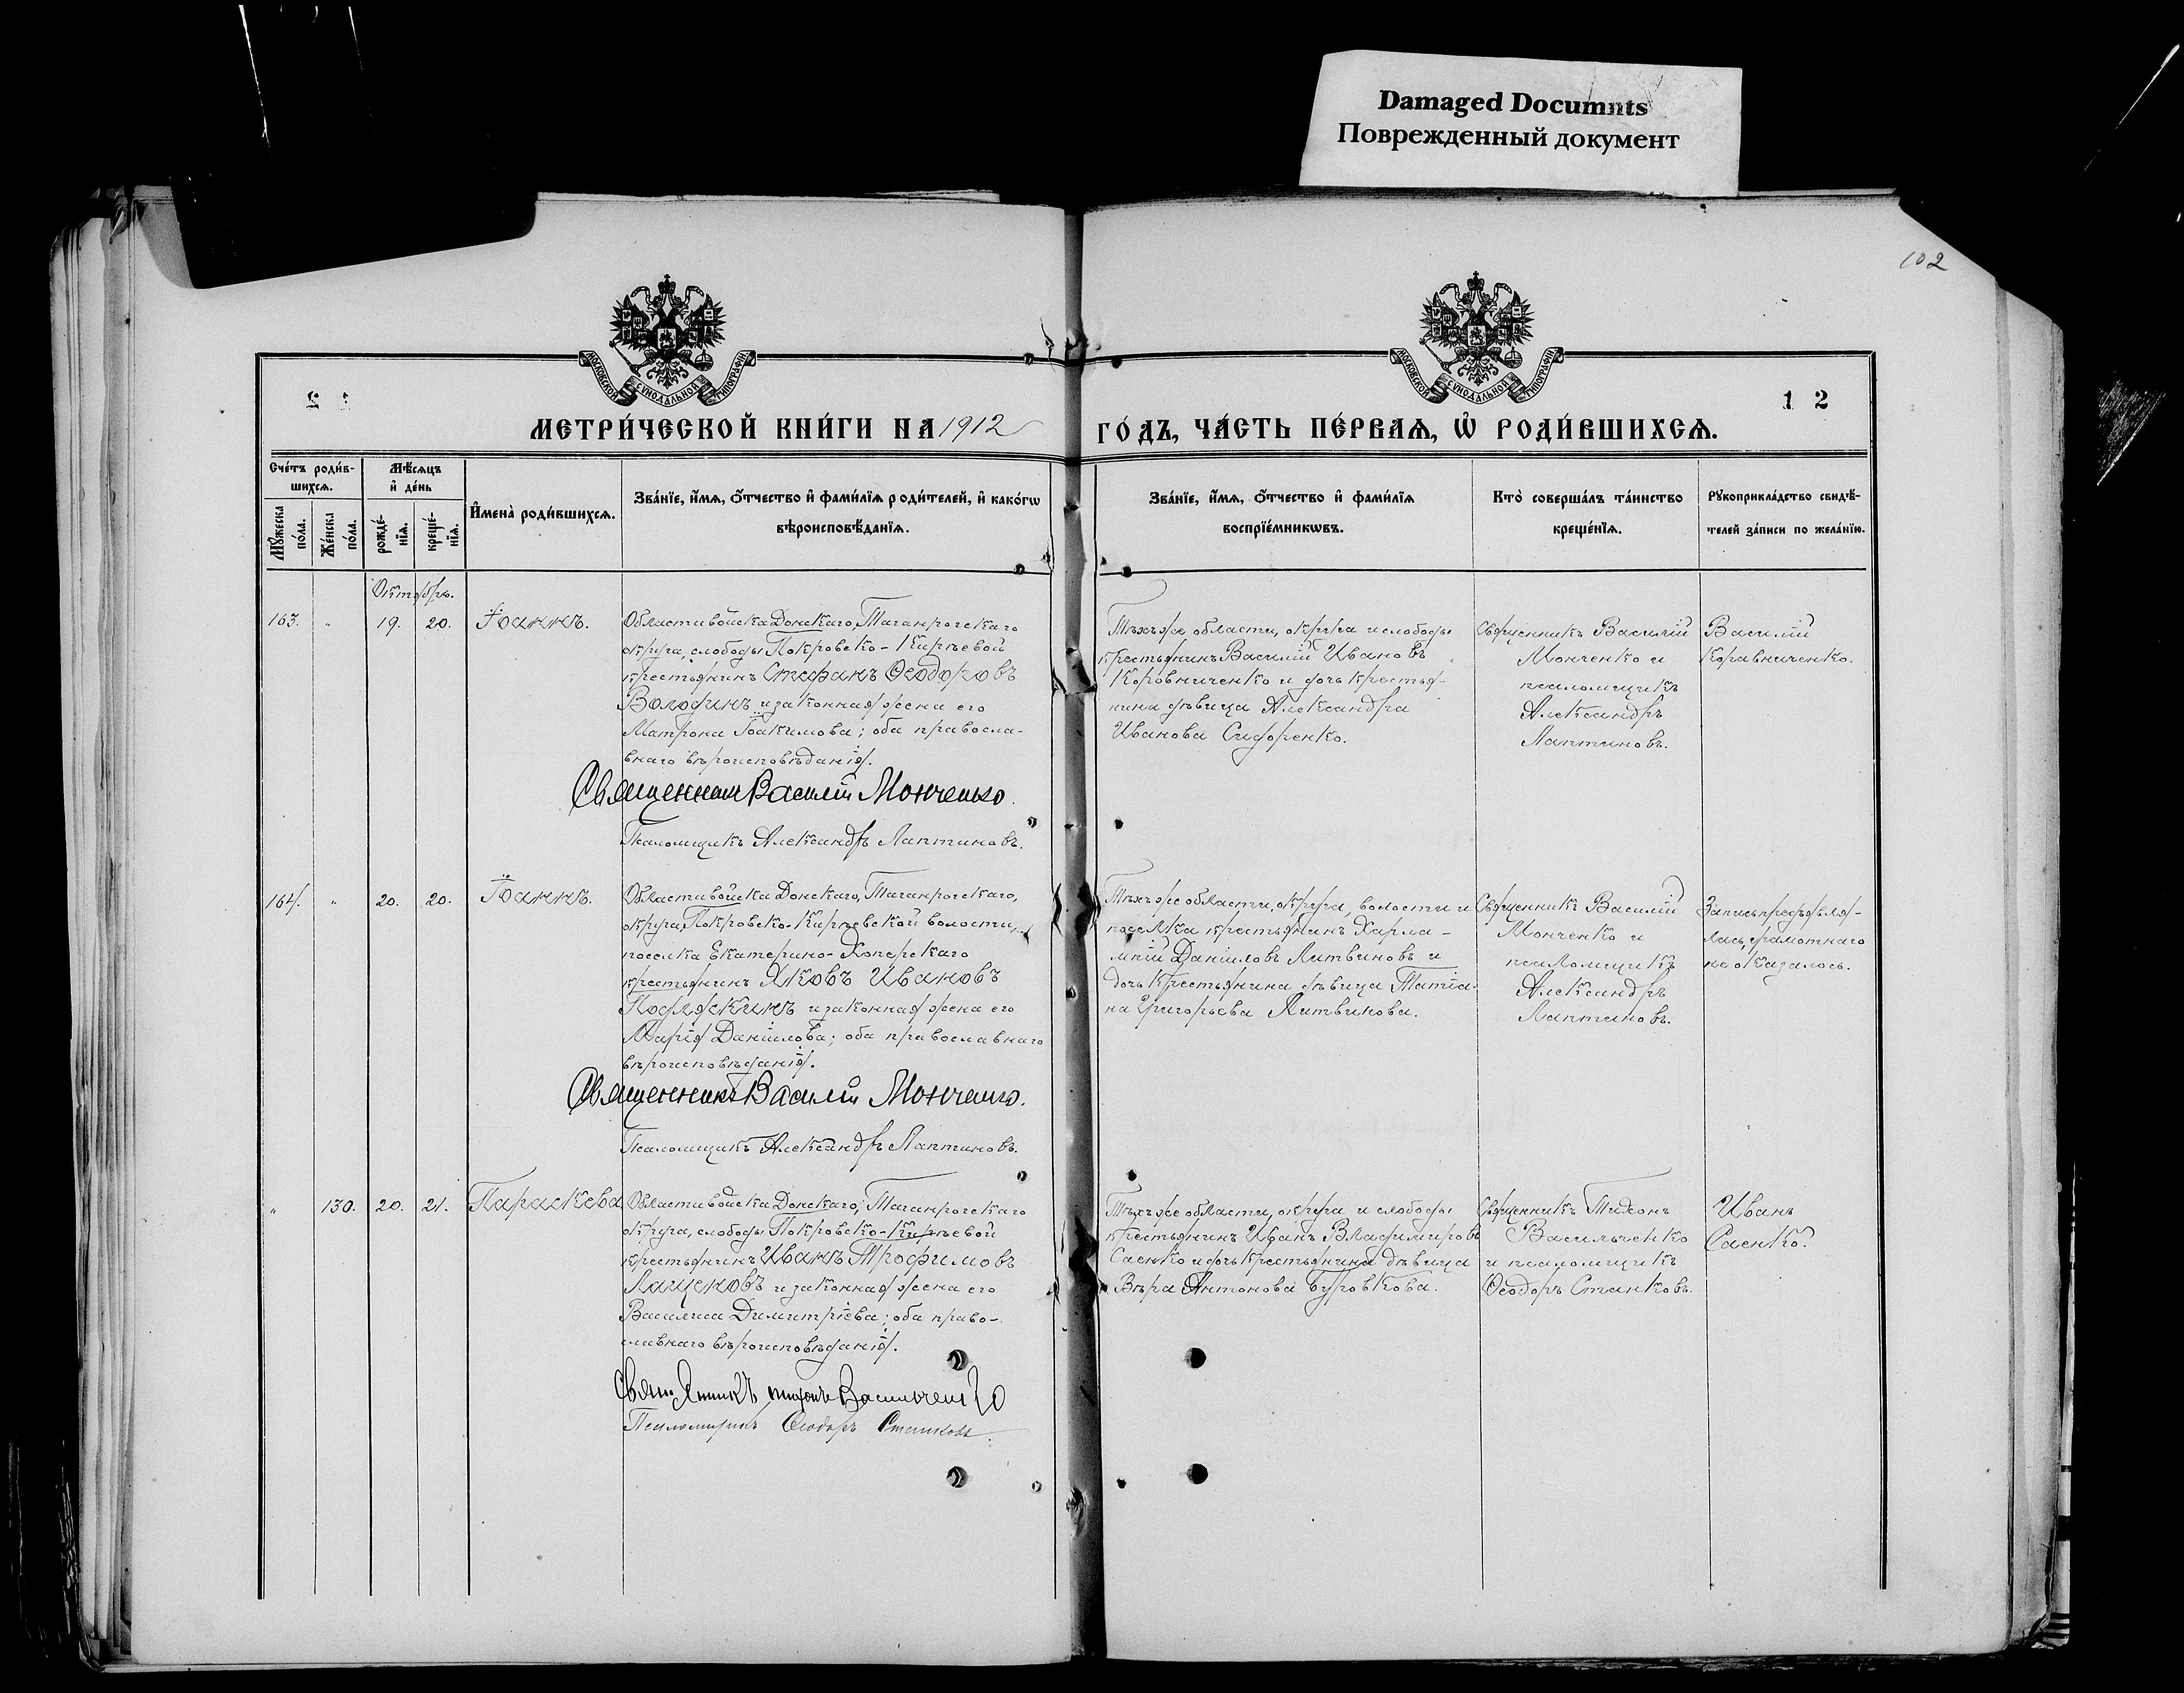 Damaged Documnts
Поврежденный документ
102
МОСКОВСКОЙ СУНОДАЛЬНОЙ ТИПОГРАФІИ
МОСКОВСКОЙ СУНОДАЛЬНОЙ ТИПОГРАФІИ
12
МЕТРИ́ЧЕСКОЙ КНИ́ГИ НА 1912 ГО́ДЪ, ЧА́СТЬ ПЕ́РВАѦ, Ѡ҆ РОДИ́ВШИХСѦ.
Сче́тъ роди́в-
шихсѧ.
Мꙋ́жеска по́ла.
Же́нска по́ла.
Мѣ́сѧцъ
и҆ де́нь
рожде́-
нїѧ.
креще́-
нїѧ.
И҆мена̀ роди́вшихсѧ.
Зва́нїе, и҆́мѧ, ѻ҆́тчество и҆ фами́лїѧ роди́телей, и҆ како́гѡ
вѣроисповѣ́данїѧ.
Зва́нїе, и҆́мѧ, ѻ҆́тчество и҆ фами́лїѧ
воспрїе́мникѡвъ.
Кто̀ соверша́лъ та́инство
креще́нїѧ.
Рꙋкоприкла́дство свидѣ́-
телей за́писи по жела́нїю.
Октябрь.
163.
"
19.
20.
Іоаннъ.
Области войска Донскаго, Таганрогскаго
округа, слободы Покровско-Кирѣевой
крестьянинъ Стефанъ Ѳеодоровъ
Володинъ и законная жена его
Матрона Іоакимова; оба правосла-
внаго вѣроисповѣданія.
Священникъ Василій Монченко.
Псаломщикъ Александръ Лаптиновъ.
Тѣхъ же области, округа и слободы
крестьянинъ Василій Ивановъ
Коровниченко и дочь крестья-
нина дѣвица Александра
Иванова Сидоренко.
Священникъ Василій
Монченко и
псаломщикъ
Александръ
Лаптиновъ.
Василій
Коравниченко.
164.
"
20.
20.
Іоаннъ.
Области войска Донскаго, Таганрогскаго,
округа, Покровско-Кирѣевской волости,
поселка Екатерино-Хоперскаго
крестьянинъ Яковъ Ивановъ
Подляскинъ и законная жена его
Марія Даніилова; оба православнаго
вѣроисповѣданія.
Священникъ Василій Монченко.
Псаломщикъ Александръ Лаптиновъ.
Тѣхъ же области, округа, волости и
поселка крестьянинъ Харла-
мпій Даніиловъ Литвиновъ и
дочь крестьянина дѣвица Татіа-
на Григорьева Литвинова.
Священникъ Василій
Монченко и
псаломщикъ
Александръ
Лаптиновъ.
Запись предъявля-
лась, грамотнаго
не оказалось.
"
130.
20.
21.
Параскева
Области войска Донскаго, Таганрогскаго
округа, слободы Покровско-Кирѣевой
крестьянинъ Иванъ Трофимовъ
Лащековъ и законная жена его
Василиса Димитріева; оба право-
славнаго вѣроисповѣданія.
Священникъ Тихонъ Васильченко
Псаломщикъ Ѳеодоръ Станковъ.
Тѣхъ же области, округа и слободы
крестьянинъ Иванъ Владимировъ
Саенко и дочь крестьянина дѣвица
Вѣра Антонова Буровкова.
Священникъ Тихонъ
Васильченко
и псаломщикъ
Ѳеодоръ Станковъ.
Иванъ
Саенко.